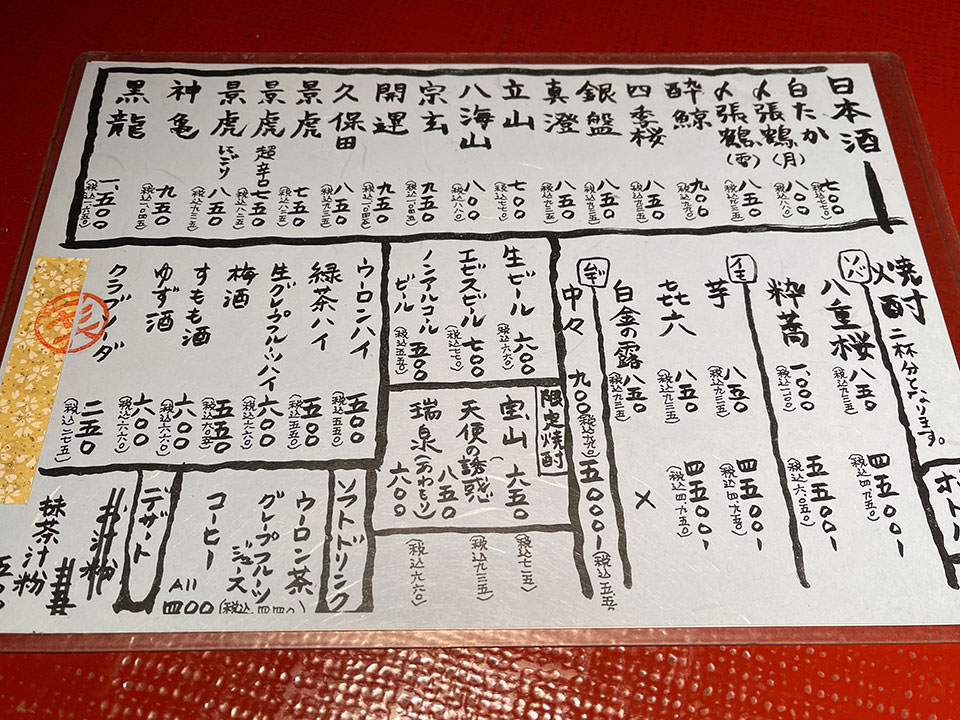 日本酒
白たか 七〇〇 (税込七七〇)
〆張鶴(月) 八〇〇 (税込八八〇)
〆張鶴(雪) 八五〇 (税込九三五)
酔鯨 九〇〇 (税込九九〇)
四季桜 八五〇 (税込九三五)
銀盤 八五〇 (税込九三五)
真澄 八五〇 (税込九三五)
立山 七〇〇 (税込七七〇)
八海山 八〇〇 (税込八八〇)
宗玄 九五〇 (税込一〇四五)
開運 九五〇 (税込一〇四五)
久保田 八五〇 (税込九三五)
景虎 七五〇 (税込八二五)
景虎 超辛口 七五〇 (税込八二五)
景虎 にごり 八五〇 (税込九三五)
神亀 九五〇 (税込一〇四五)
黒龍 一、五〇〇 (税込一、六五〇)
焼酎 二杯分となります。
ボトル
ソバ
八重桜 八五〇 (税込九三五) 四五〇〇ー (税込四、九五〇)
粋蕎 一、〇〇〇 (税込一一〇〇) 五五〇〇ー (税込六、〇五〇)
イモ
芋 八五〇 (税込九三五) 四五〇〇ー (税込四、九五〇)
㐂六 八五〇 (税込九三五) 四五〇〇ー (税込四、九五〇)
白金の露 八五〇 (税込九三五) ×
ムギ
中々 九〇〇 (税込九九〇) 五〇〇〇ー (税込五、五
生ビール 六〇〇 (税込六六〇)
エビスビール 七〇〇 (税込七七〇)
ノンアルコールビール 五〇〇 (税込五五〇)
限定焼酎
宝山 六五〇 (税込七一五)
天使の誘惑 八五〇 (税込九三五)
瑞泉(あわもり) 六〇〇 (税込六六〇)
ウーロンハイ 五〇〇 (税込五五〇)
緑茶ハイ 五〇〇 (税込五五〇)
生グレープフルーツハイ 六〇〇 (税込六六〇)
梅酒 五五〇 (税込六〇五)
すもも酒 六〇〇 (税込六六〇)
ゆず酒 六〇〇 (税込六六〇)
クラブソーダ 二五〇 (税込二七五)
ソフトドリンク
ウーロン茶
グレープフルーツジュース
コーヒー
All 四〇〇 (税込四四〇)
デザート
汁粉
抹茶汁粉